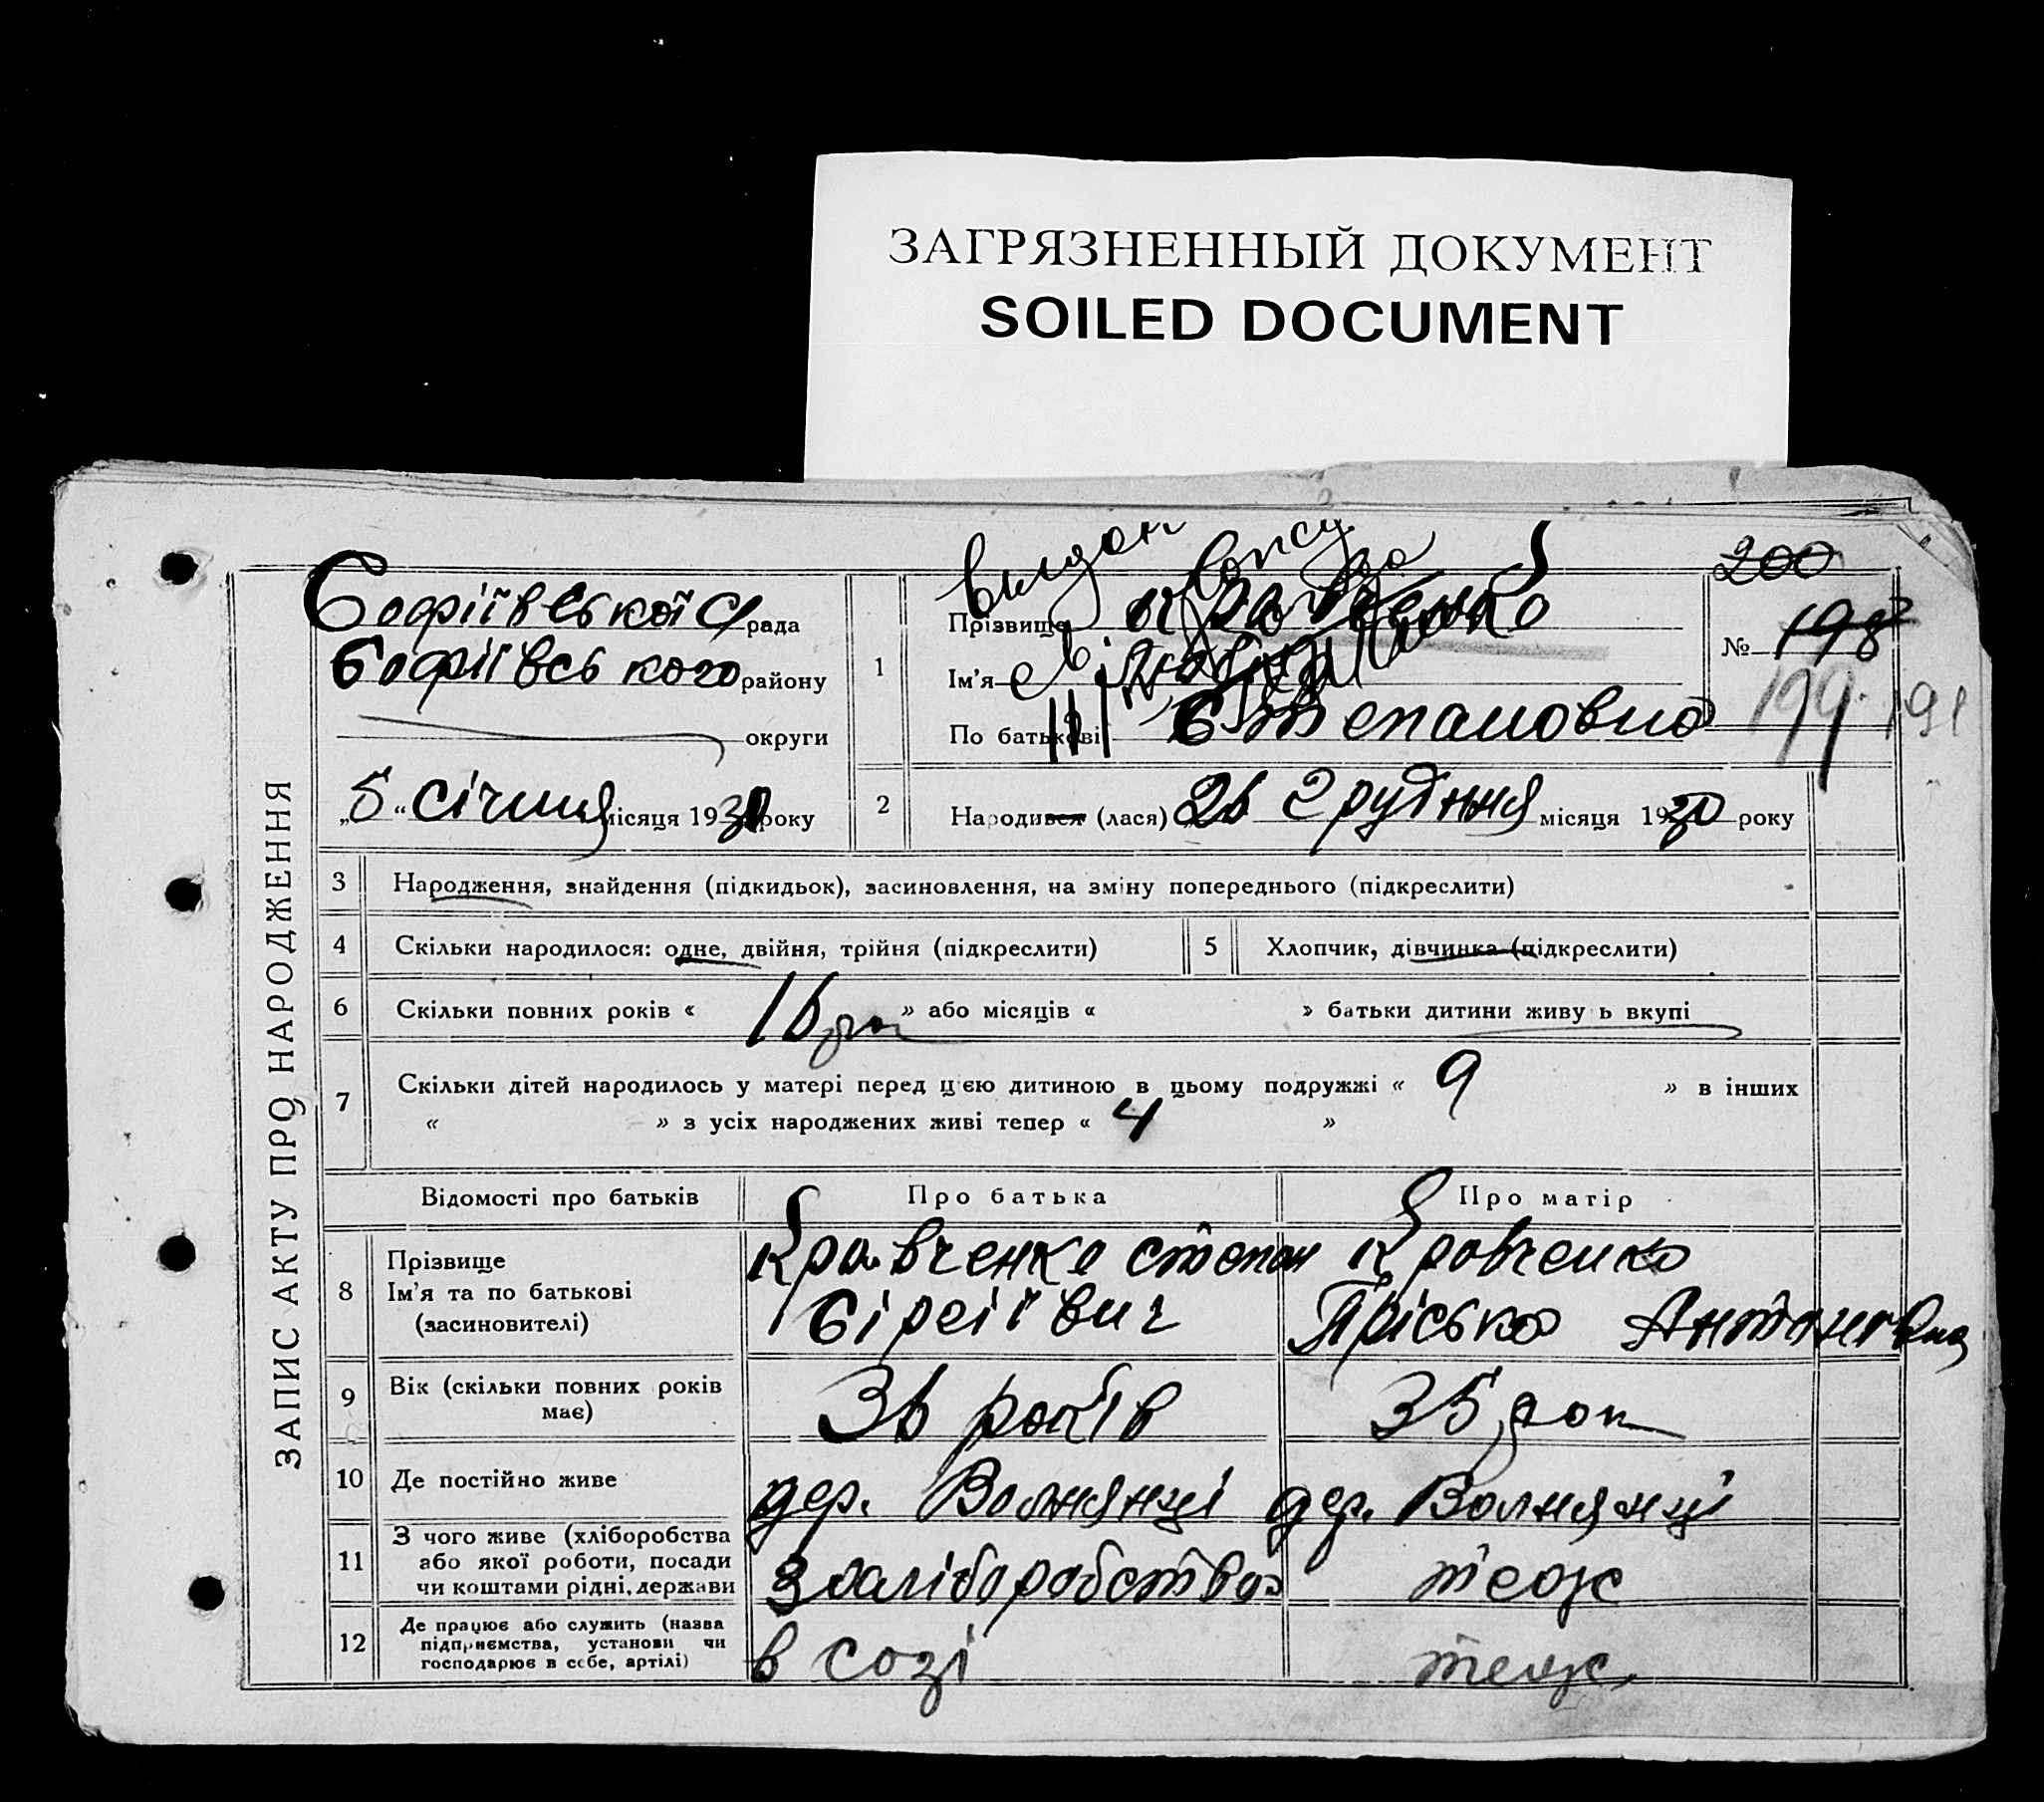 ЗАГРЯЗНЕННЫЙ ДОКУМЕНТ
SOILED DOCUMENT
ЗАПИС АКТУ ПРО НАРОДЖЕННЯ
Софіївської С/рада
Софіївського району
округи
„5“ січння місяця 1931 року
200
1 Прізвище Кравченко
Ім'я
По батькові Степановна
№ 198
199 191
2 Народився (лася) 26 грудння місяця 1930 року
3 Народження, знайдення (підкидьок), засиновлення, на зміну попереднього (підкреслити)
4 Скільки народилося: одне, двійня, трійня (підкреслити) 5 Хлопчик, дівчинка (підкреслити)
6 Скільки повних років « 16 » або місяців « » батьки дитини живу ь вкупі
7 Скільки дітей народилось у матері перед цєю дитиною в цьому подружжі « 9 » в інших
« » з усіх народжених живі тепер « 4 »
Відомості про батьків Про батька Про матір
8 Прізвище
Ім'я та по батькові
(засиновителі)
Кравченко Степан
Сіргіївич
Кравченко
Пріська Антонівна
9 Вік (скільки повних років
має)
36 років
35 рок
10 Де постійно живе дер. Волнянці дер. Волнянці
11 З чого живе (хліборобства
або якої роботи, посади
чи коштами рідні, держави
З халіборобства
теж
12 Де працює або служить (назва
підприємства, установи чи
господарює в себе, артілі)
в созі
теж